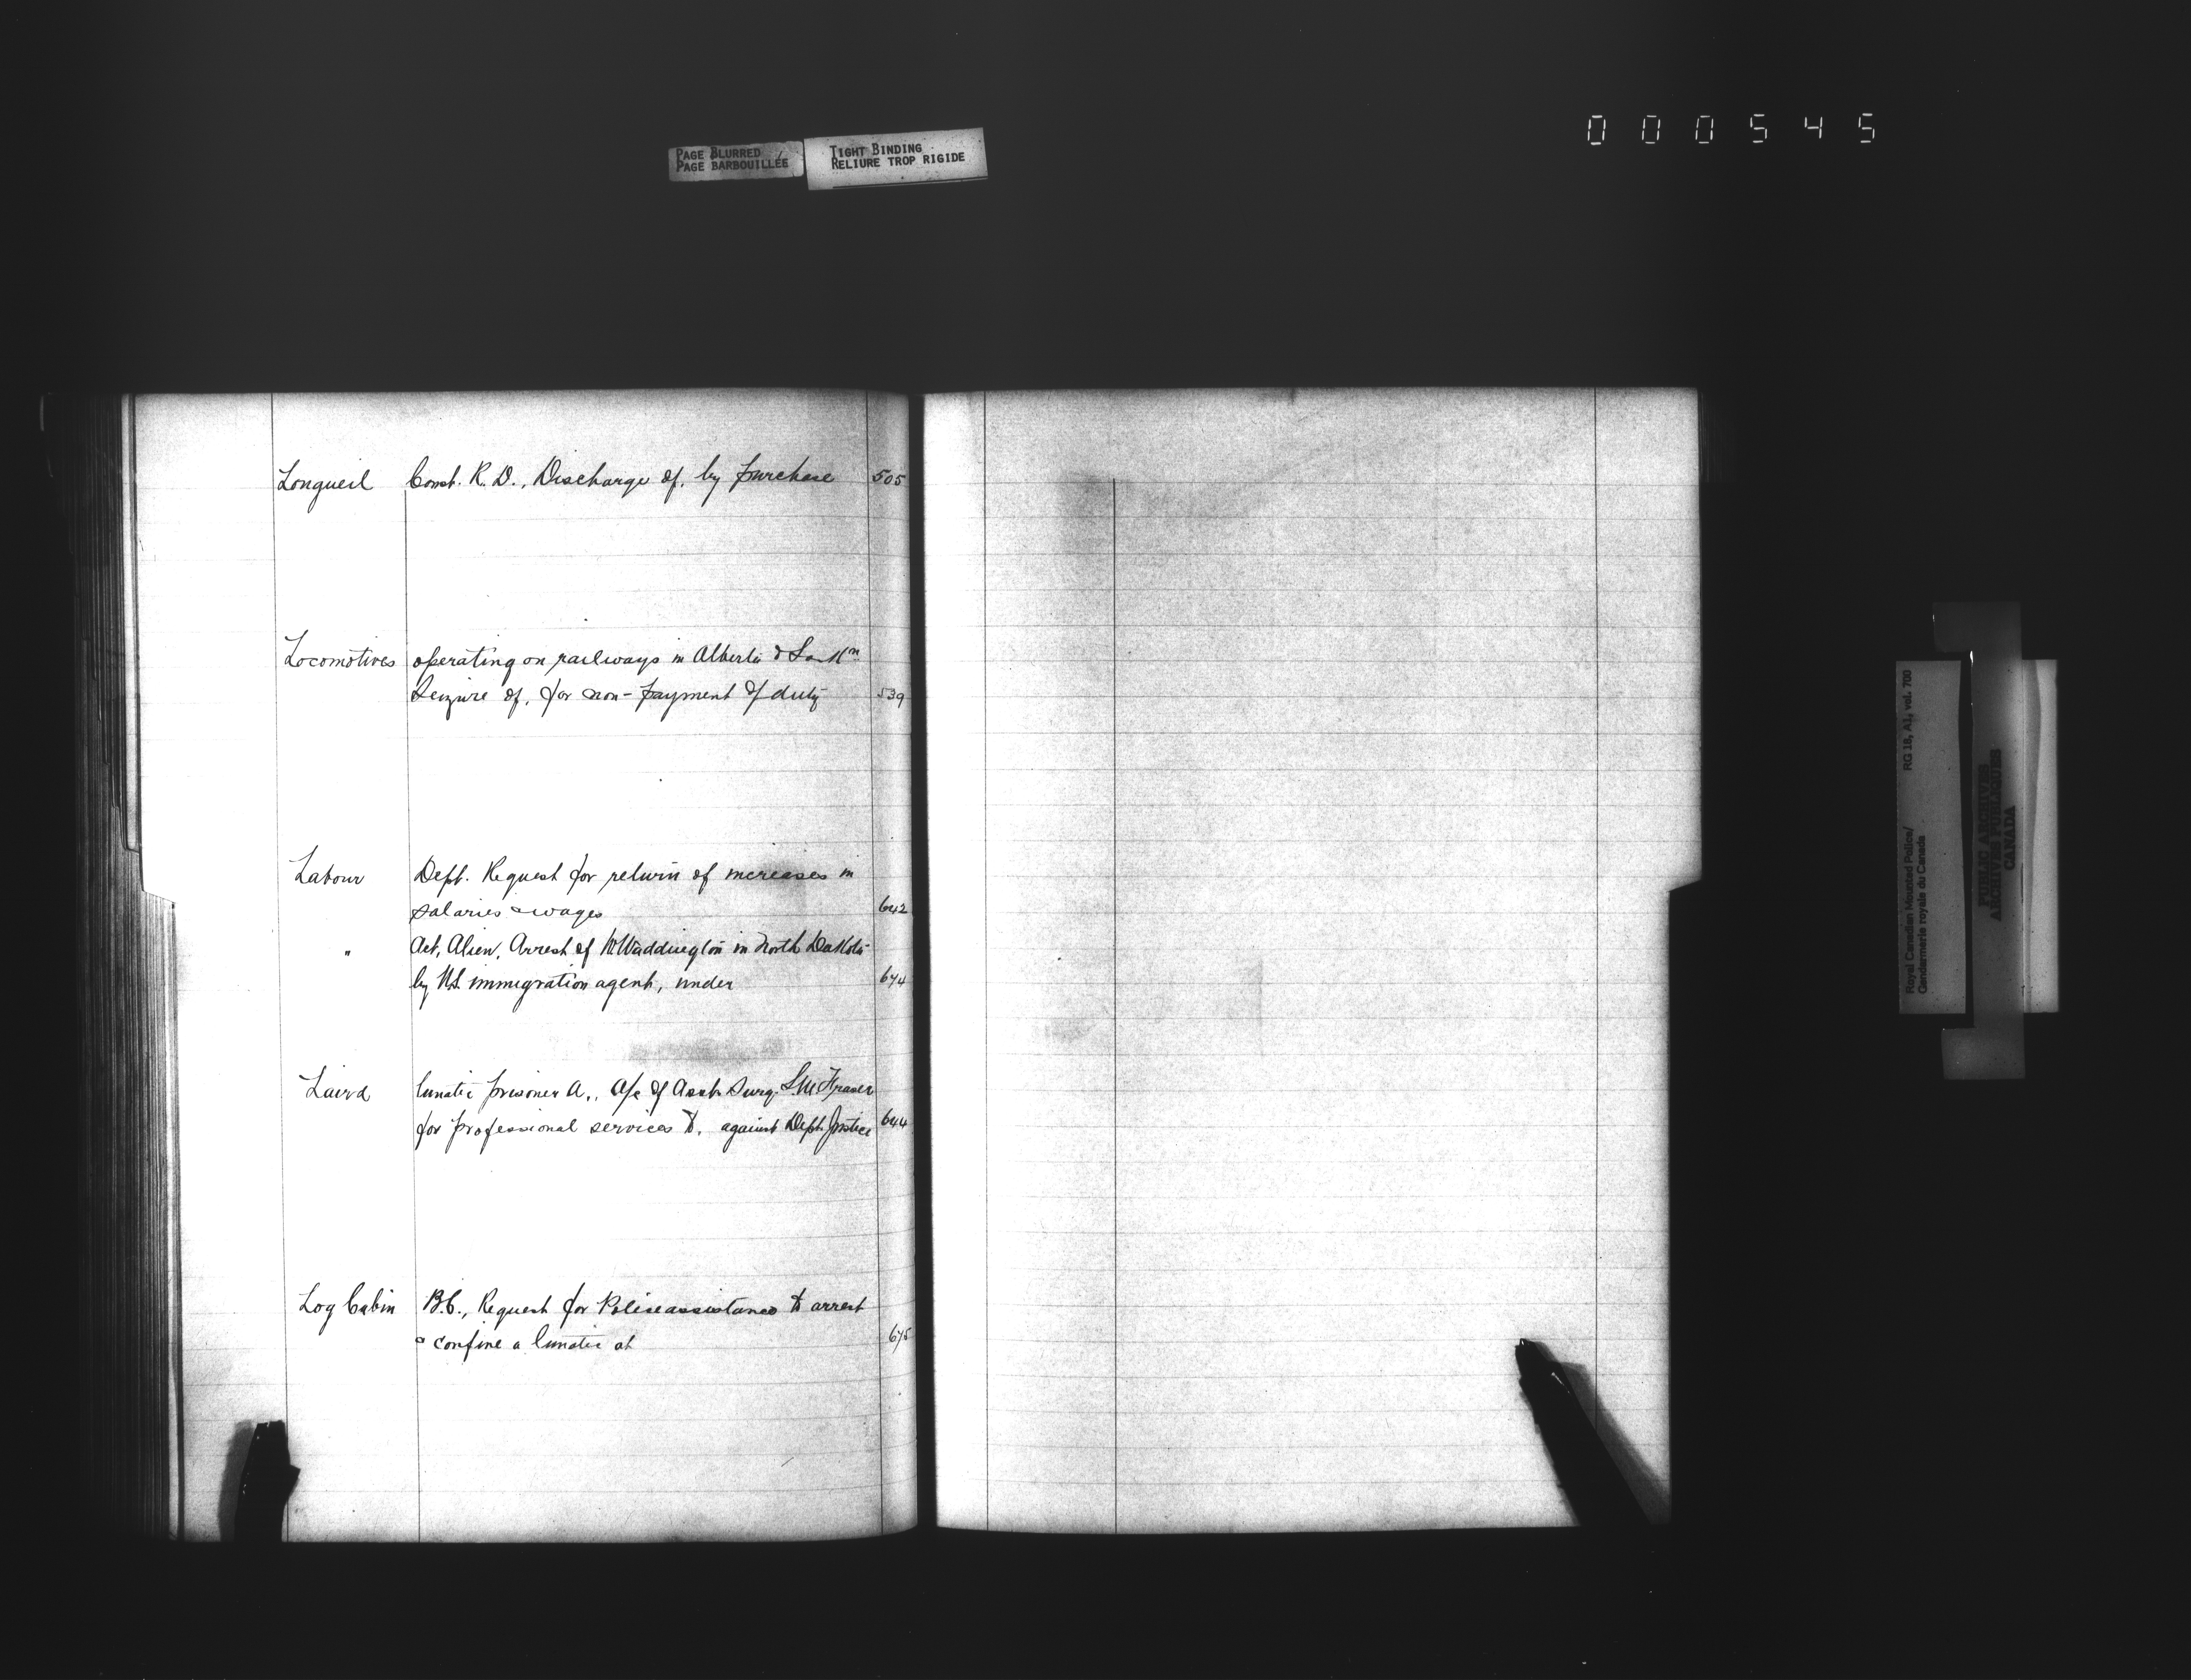 000545
PAGE BLURRED
PAGE BARBOUILLÉE
TIGHT BINDING
RELIURE TROP RIGIDE
Longueil Const. R. D., Discharge of, by purchase 505
Locomotives operating on railways in Alberta & Sask'n
Seizure of, for non-payment of duty 539
Labour Dept. Request for return of increases in
salaries & wages 642
" Act, Alien, Arrest of W Waddington in North Dakota
by U.S. immigration agent, under 674
Laird lunatic prisoner A., a/c of Asst. Surg. S.M. Fraser
for professional services to, against Dept. Justice 644
Log Cabin B.C., Request for Police assistance to arrest
& confine a lunatic at 675
Royal Canadian Mounted Police/ RG 18, A1, vol. 700
Gendarmerie royale du Canada
PUBLIC ARCHIVES
ARCHIVES PUBLIQUES
CANADA